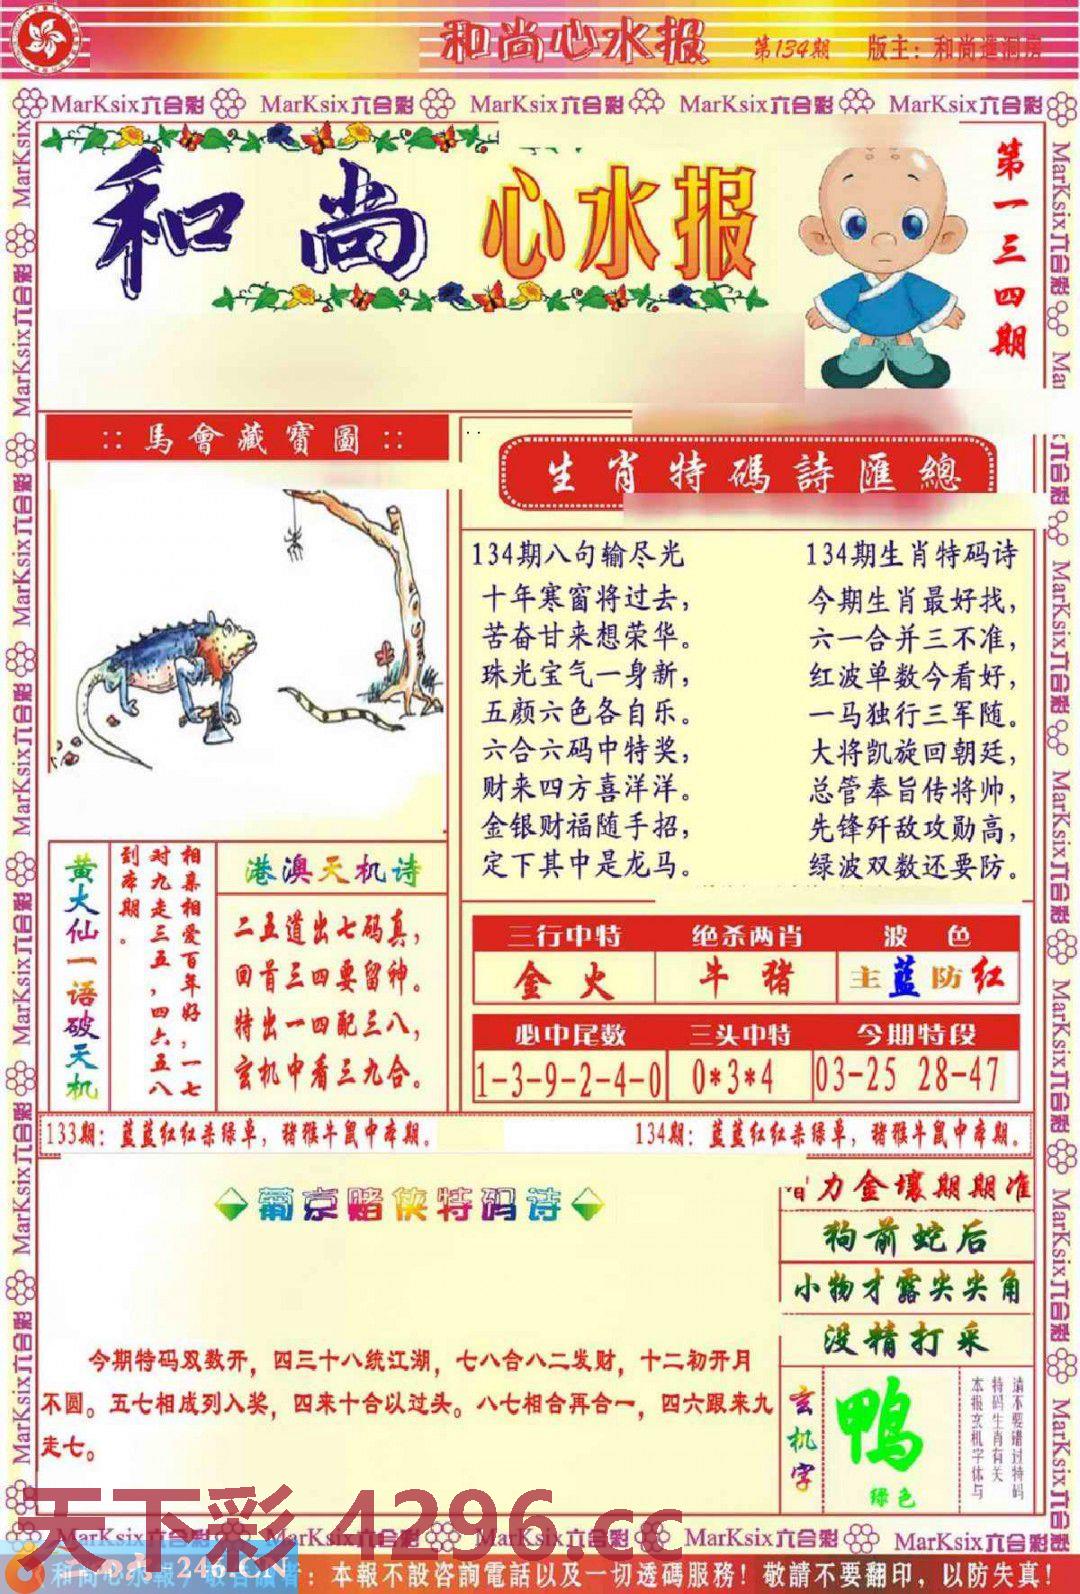 和尚心水报
第134期
版主：和尚進洞房
MarKsix六合彩 MarKsix六合彩 MarKsix六合彩 MarKsix六合彩 MarKsix六合彩
和尚心水报
第一三四期
:: 馬會藏寶圖 ::
生肖特碼詩匯總
134期八句输尽光
十年寒窗将过去，
苦奋甘来想荣华。
珠光宝气一身新，
五颜六色各自乐。
六合六码中特奖，
财来四方喜洋洋。
金银财福随手招，
定下其中是龙马。
134期生肖特码诗
今期生肖最好找，
六一合并三不准，
红波单数今看好，
一马独行三军随。
大将凯旋回朝廷，
总管奉旨传将帅，
先锋歼敌攻勋高，
绿波双数还要防。
黄大仙一语破天机
相亲相爱百年好，一七
对九走三五，四六五八
到本期。
港澳天机诗
二五道出七码真，
回首三四要留神。
特出一四配三八，
玄机中看三九合。
三行中特 绝杀两肖 波色
金火 牛猪 主蓝防红
必中尾数 三头中特 今期特段
1-3-9-2-4-0 0*3*4 03-25 28-47
133期：蓝蓝红红杀绿单，猪猴牛鼠中本期。
134期：蓝蓝红红杀绿单，猪猴牛鼠中本期。
葡京赌侠特码诗
今期特码双数开，四三十八统江湖，七八合八二发财，十二初开月
不圆。五七相成列入奖，四来十合以过头。八七相合再合一，四六跟来九
走七。
力金壤期期准
狗前蛇后
小物才露尖尖角
没精打采
玄机字
鸭
绿色
请不要错过特码
特码生肖有关
本报玄机字体与
天下彩 4296.cc
MarKsix六合彩 MarKsix六合彩 MarKsix六合彩 MarKsix六合彩 MarKsix六合彩
二四六 246.CN
：本報不設咨詢電話以及一切透碼服務！敬請不要翻印，以防失真！